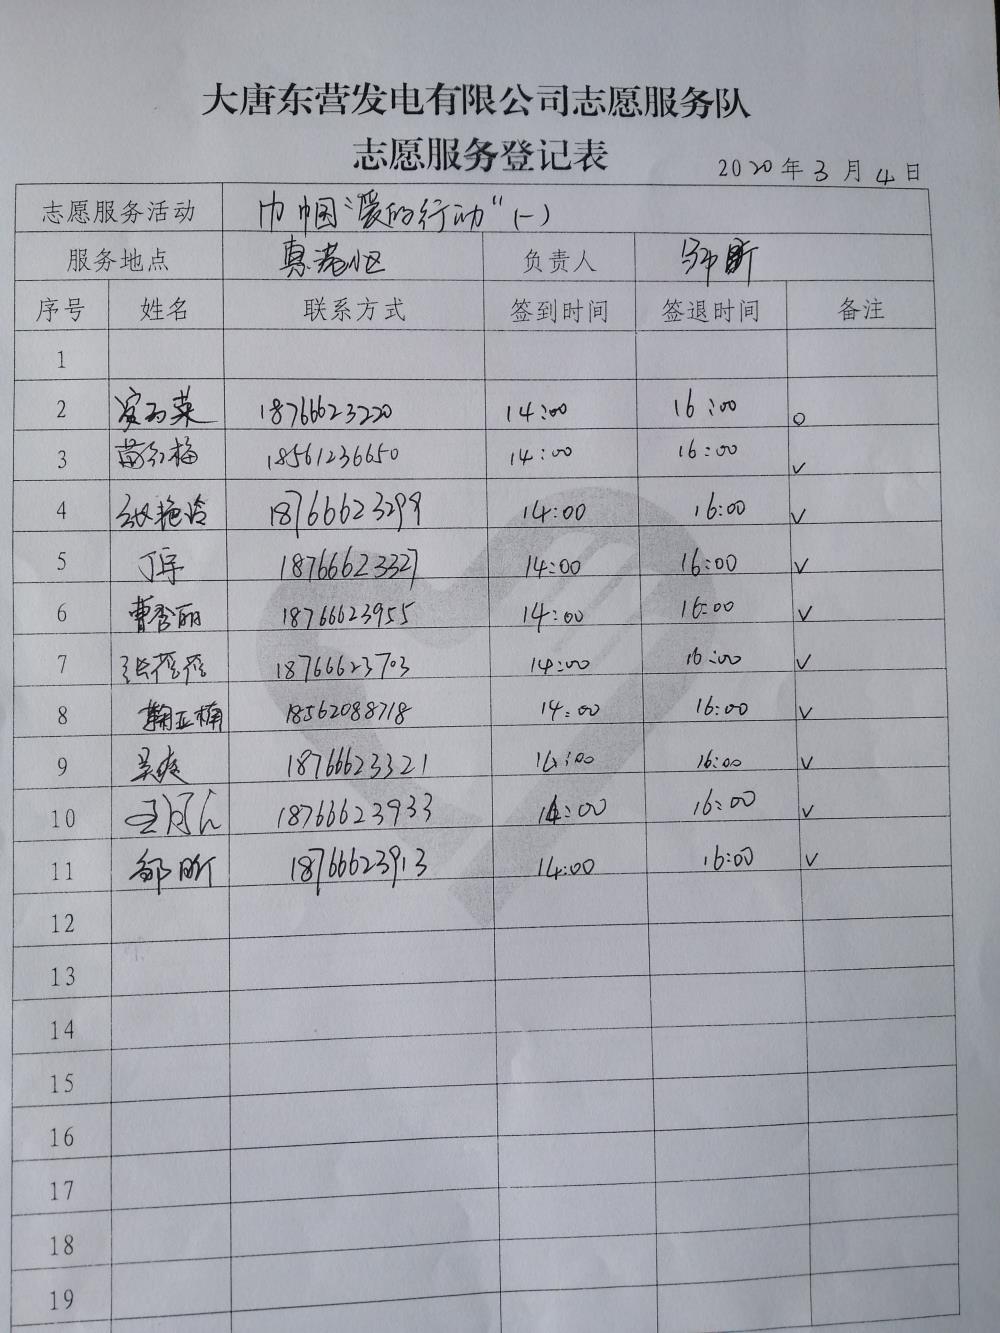 大唐东营发电有限公司志愿服务队
志愿服务登记表
2020年3月4日
志愿服务活动 巾帼"爱的行动"(一)
服务地点 惠港小区 负责人 邹昕
序号 姓名 联系方式 签到时间 签退时间 备注
1
2 18766623220 14:00 16:00 o
3 苗红梅 18561236650 14:00 16:00 √
4 18766623299 14:00 16:00 √
5 丁宇 18766623327 14:00 16:00 √
6 曹秀丽 18766623955 14:00 16:00 √
7 18766623703 14:00 16:00 √
8 鞠亚楠 18562088718 14:00 16:00 √
9 吴爽 18766623321 14:00 16:00 √
10 18766623933 14:00 16:00 √
11 邹昕 18766623913 14:00 16:00 √
12
13
14
15
16
17
18
19